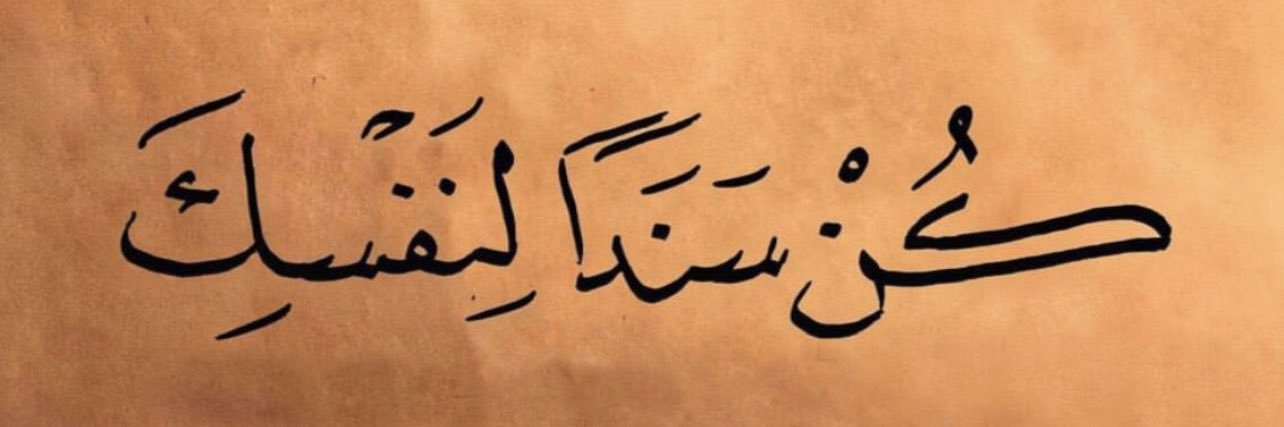 كُنْ سَنَدًا لِنَفْسِكَ